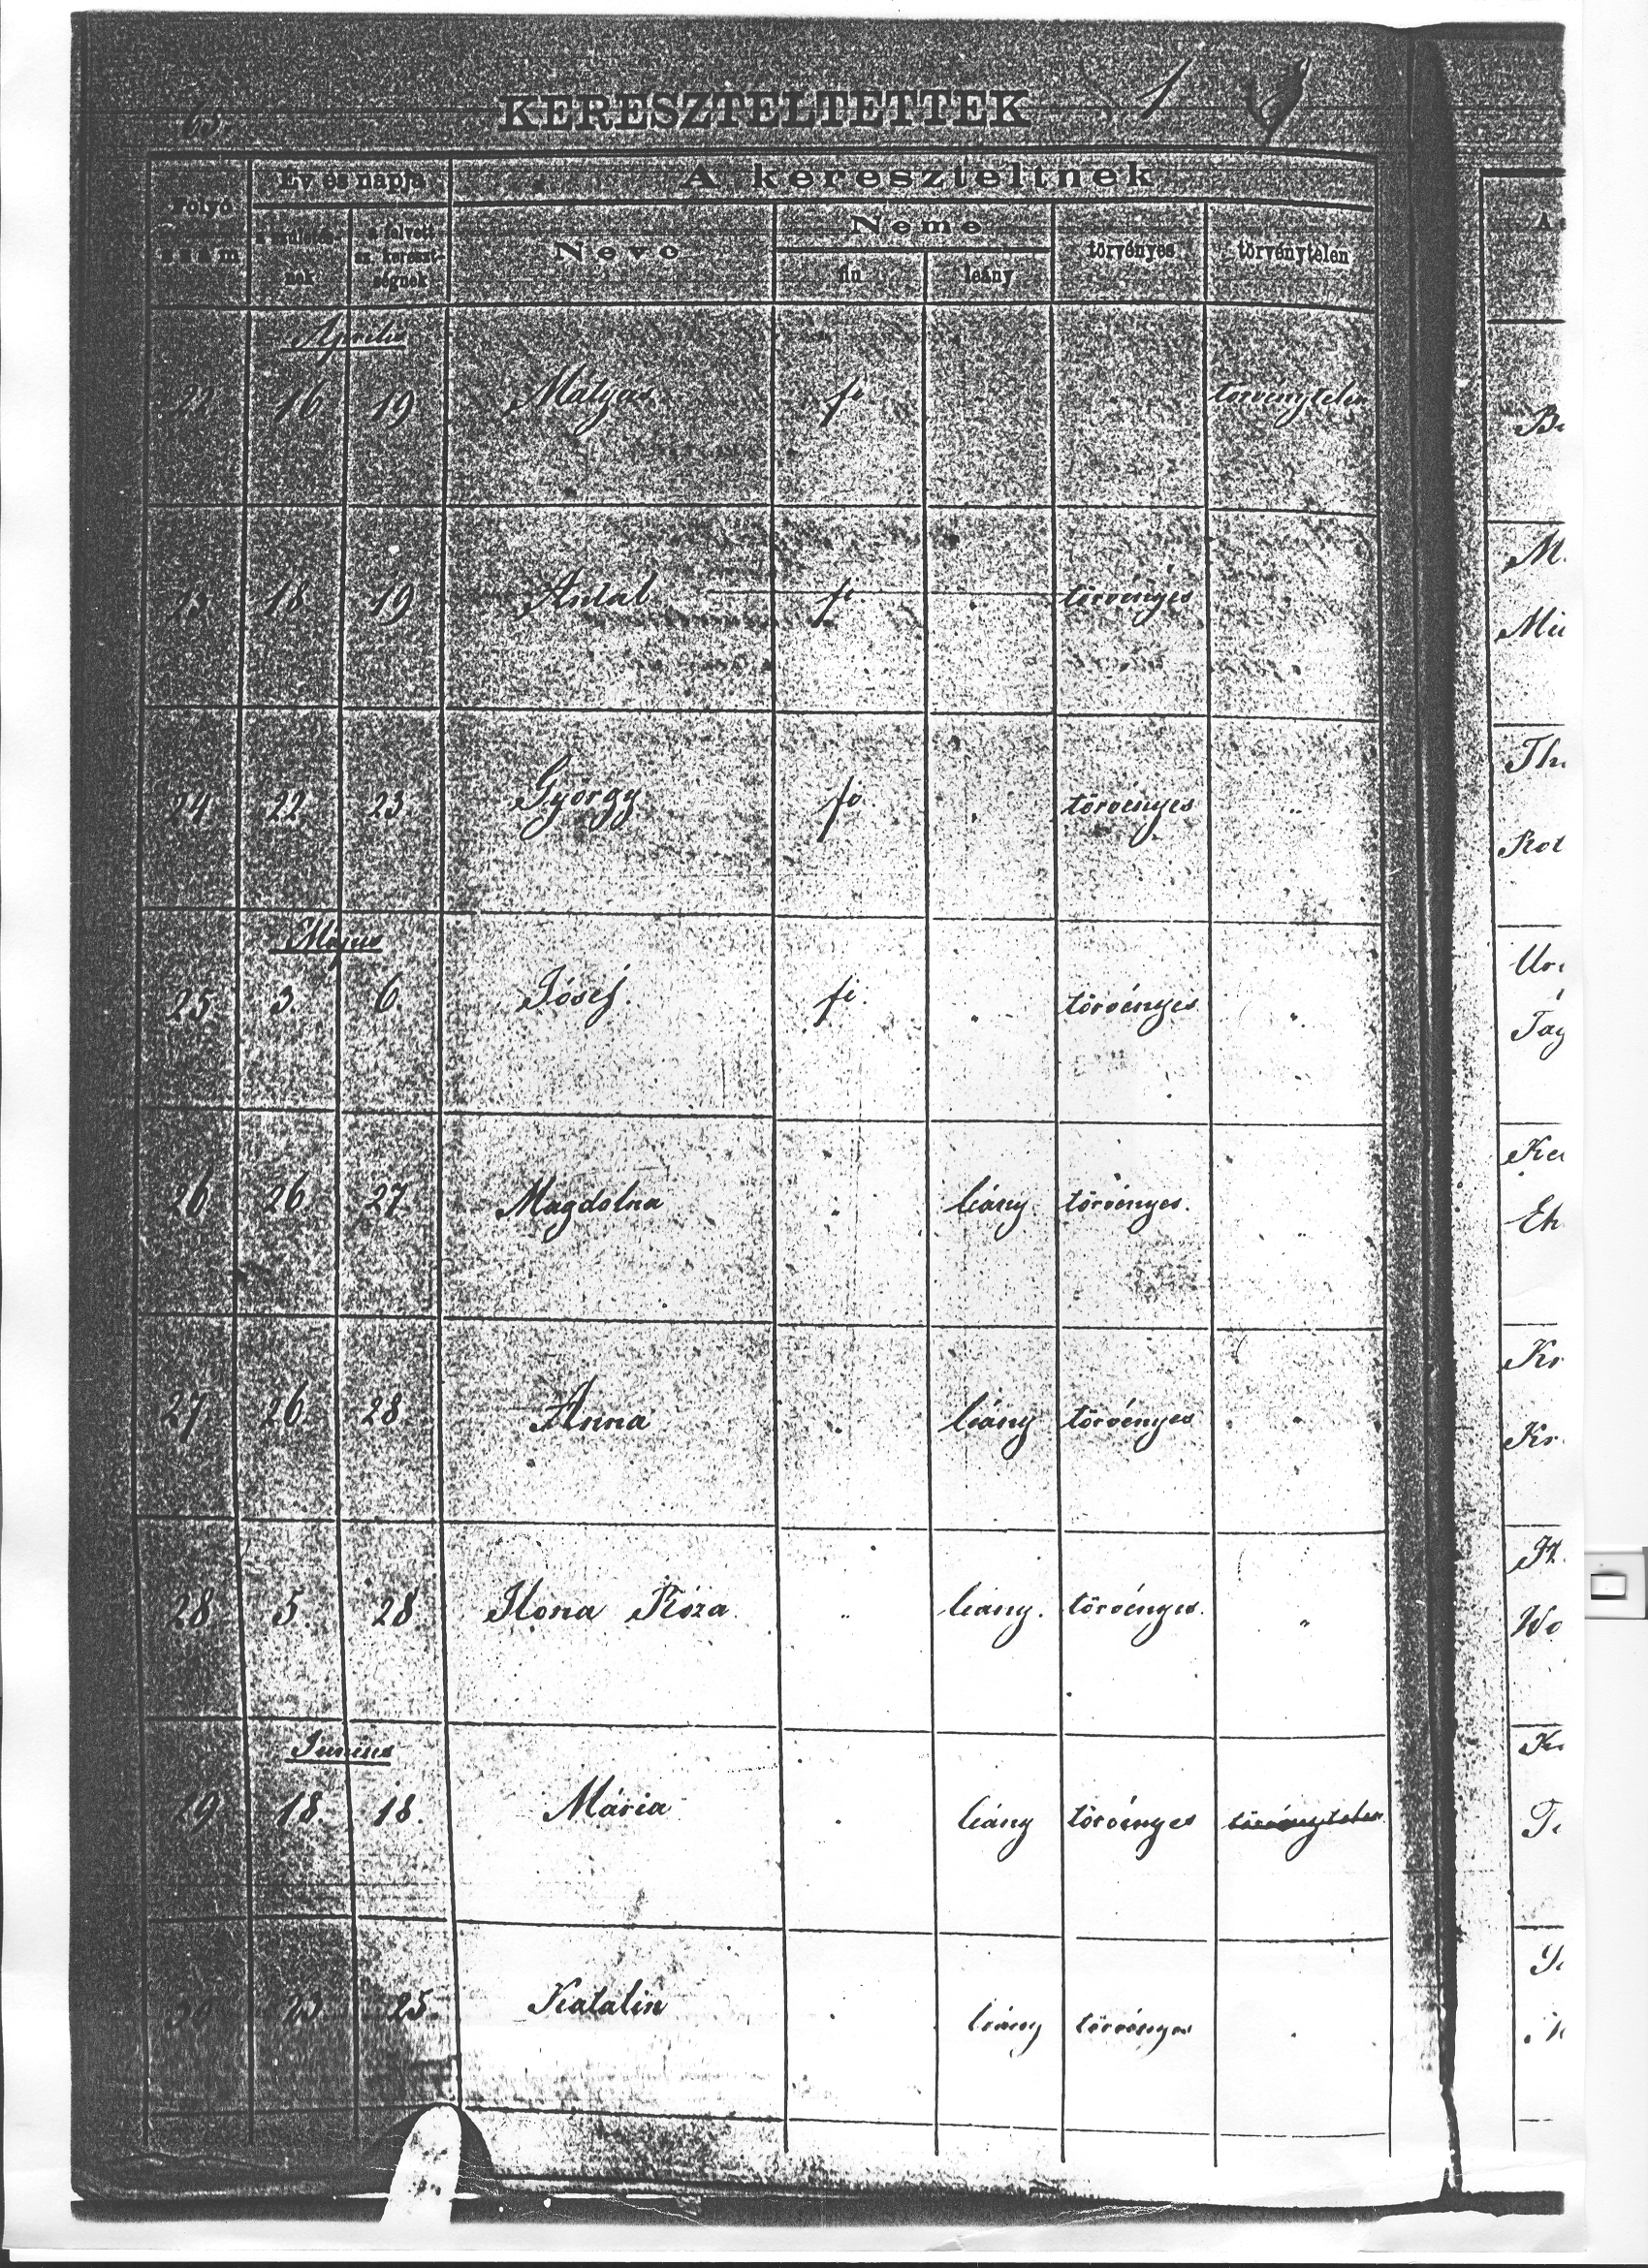 65.
KERESZTELTETTEK
Folyó szám
Év és napja
A kereszteltnek
a születés-
nek
a felvett
sz. kereszt-
ségnek
Neve
Neme
fiu
leány
törvényes
törvénytelen
Április
22 16 19 Mátyás fi törvénytelen
23 18 19 Antal fi törvényes
24 22 23. György fi törvényes "
Május
25 3. 6. Jósef. fi. " törvényes "
26 26 27. Magdolna " leány törvényes. "
27 26 28. Anna " leány törvényes "
28 5. 28. Ilona Róza " leány. törvényes. "
Junius
29 18. 18. Mária leány törvényes törvénytelen
30 23. 25. Katalin leány törvényes
A
Be
M.
Mü
Kot
Tay
Eh
Kr
Kr.
Wo